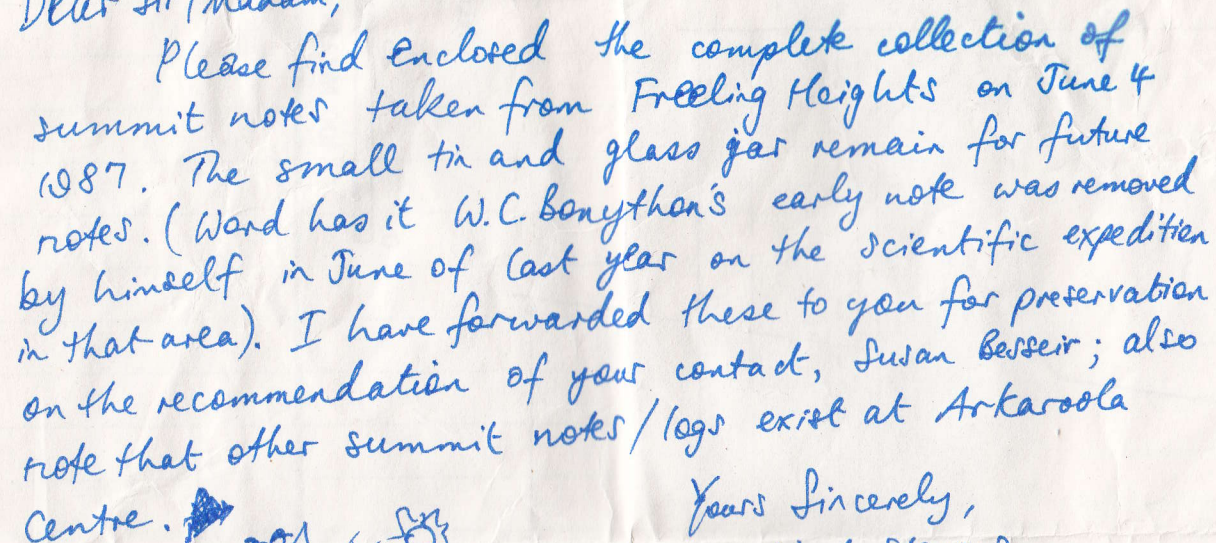 Dear Sir/Madam,
Please find enclosed the complete collection of
summit notes taken from Freeling Heights on June 4
1987. The small tin and glass jar remain for future
notes. (Word has it W.C. Bonython's early note was removed
by himself in June of last year on the scientific expedition
in that area). I have forwarded these to you for preservation
on the recommendation of your contact, Susan Besseir; also
note that other summit notes/logs exist at Arkaroola
Centre.
Yours Sincerely,